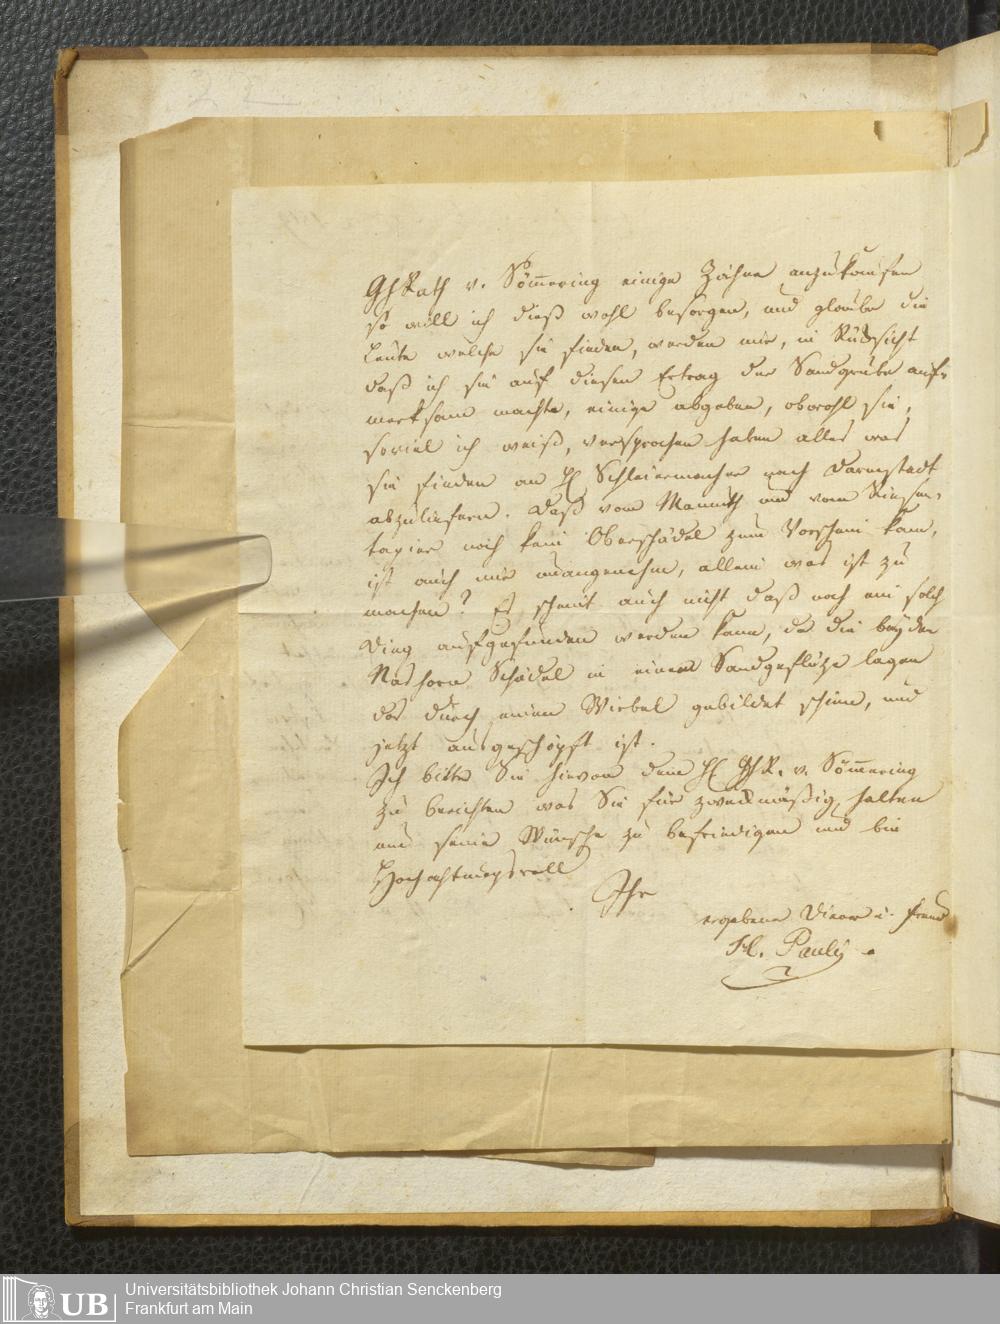 GhRath v. Sömmering einige Zähne anzukaufen
so will ich dieß wohl besorgen, und glaube die
Leute welche sie finden, werden mir, in Rücksicht
daß ich sie auf diesen Ertrag der Sandgrube auf-
merksam machte, einige abgeben, obwohl sie,
soviel ich weiß, versprochen haben alles was
sie finden an H Schleiermacher nach Darmstadt
abzuliefern. Daß vom Mamuth und vom Riesen-
tapier noch kein Oberschädel zum Vorschein kam,
ist auch mir unangenehm, allein was ist zu
machen? Es scheint auch nicht daß noch ein solch
Ding aufgefunden werden kann, da die beyden
Nashorn Schädel in einem Sandgeflötze lagen
das durch einen Wirbel gebildet schien, und
jetzt ausgeschöpft ist.
Ich bitte Sie hievon dem H GhR. v. Sömmering
zu berichten was Sie für zweckmäßig halten
um seine Wünsche zu befriedigen und bin
Hochachtungsvoll
Ihr
ergebener Diener u. Freund
H. Pauly
UB
Universitätsbibliothek Johann Christian Senckenberg
Frankfurt am Main